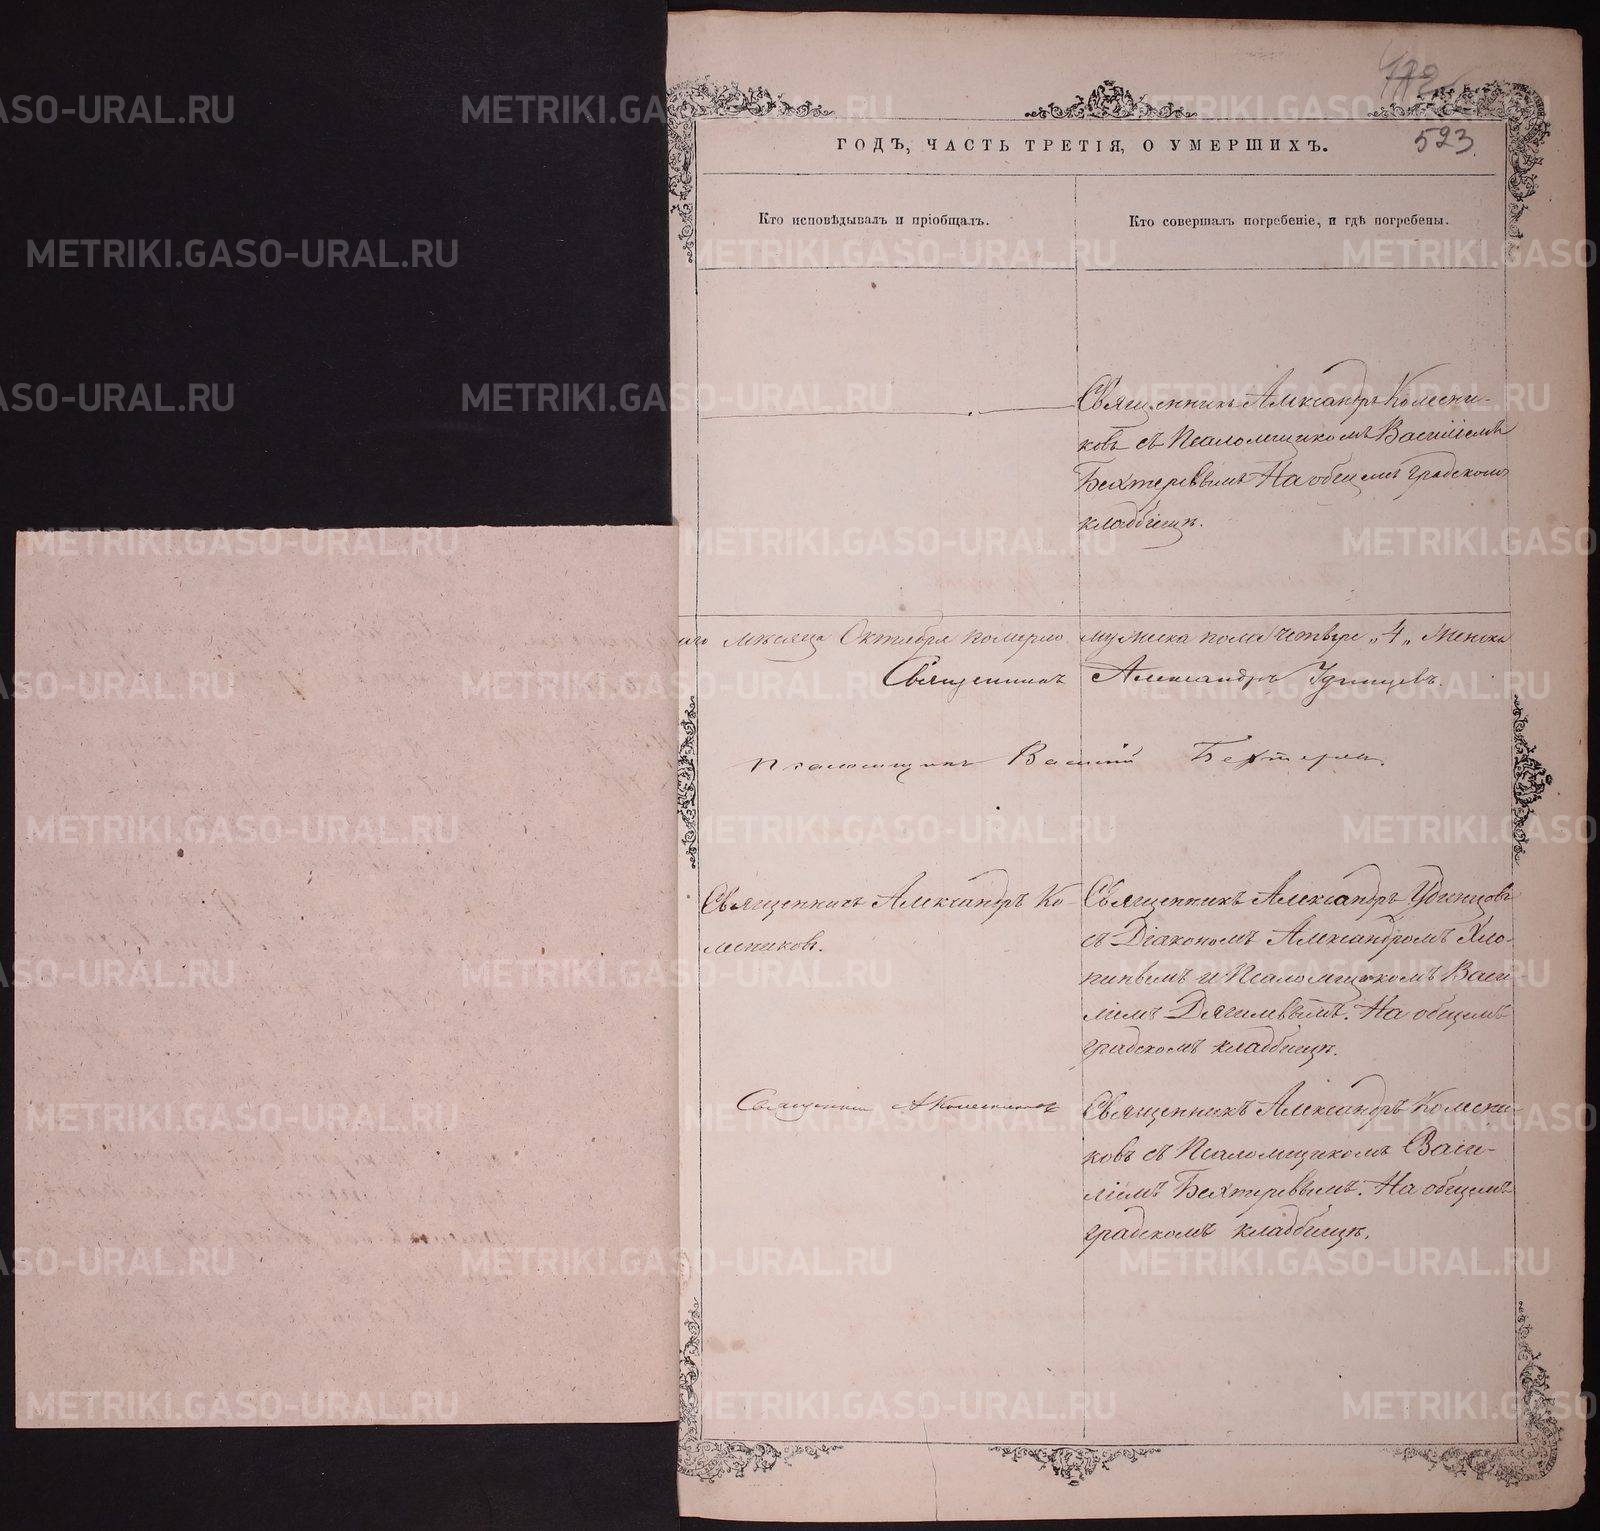 523
ГОДЪ, ЧАСТЬ ТРЕТІЯ, О УМЕРШИХЪ.
Кто исповѣдывалъ и пріобщалъ.
Кто совершалъ погребеніе, и гдѣ погребены.
Священникъ Александръ Колесни-
ковъ съ Псаломщикомъ Василіемъ
Бехтеревымъ На общемъ градскомъ
кладбищѣ.
мѣсяца Октября померло мужска пола четверо „4„ Женска
Священникъ Александръ Удинцевъ.
Псаломщикъ Василій Бехтеревъ.
Священникъ Александръ Ко-
лесниковъ.
Священникъ Александръ Удинцовъ
съ Діакономъ Александромъ Хло-
пинымъ и Псаломщикомъ Васи-
ліемъ Дягилевымъ. На общемъ
градскомъ кладбищѣ.
Священникъ А Колесниковъ
Священникъ Александръ Колесни-
ковъ съ Псаломщикомъ Васи-
ліемъ Бехтеревымъ. На общемъ
градскомъ кладбищѣ.
METRIKI.GASO-URAL.RU